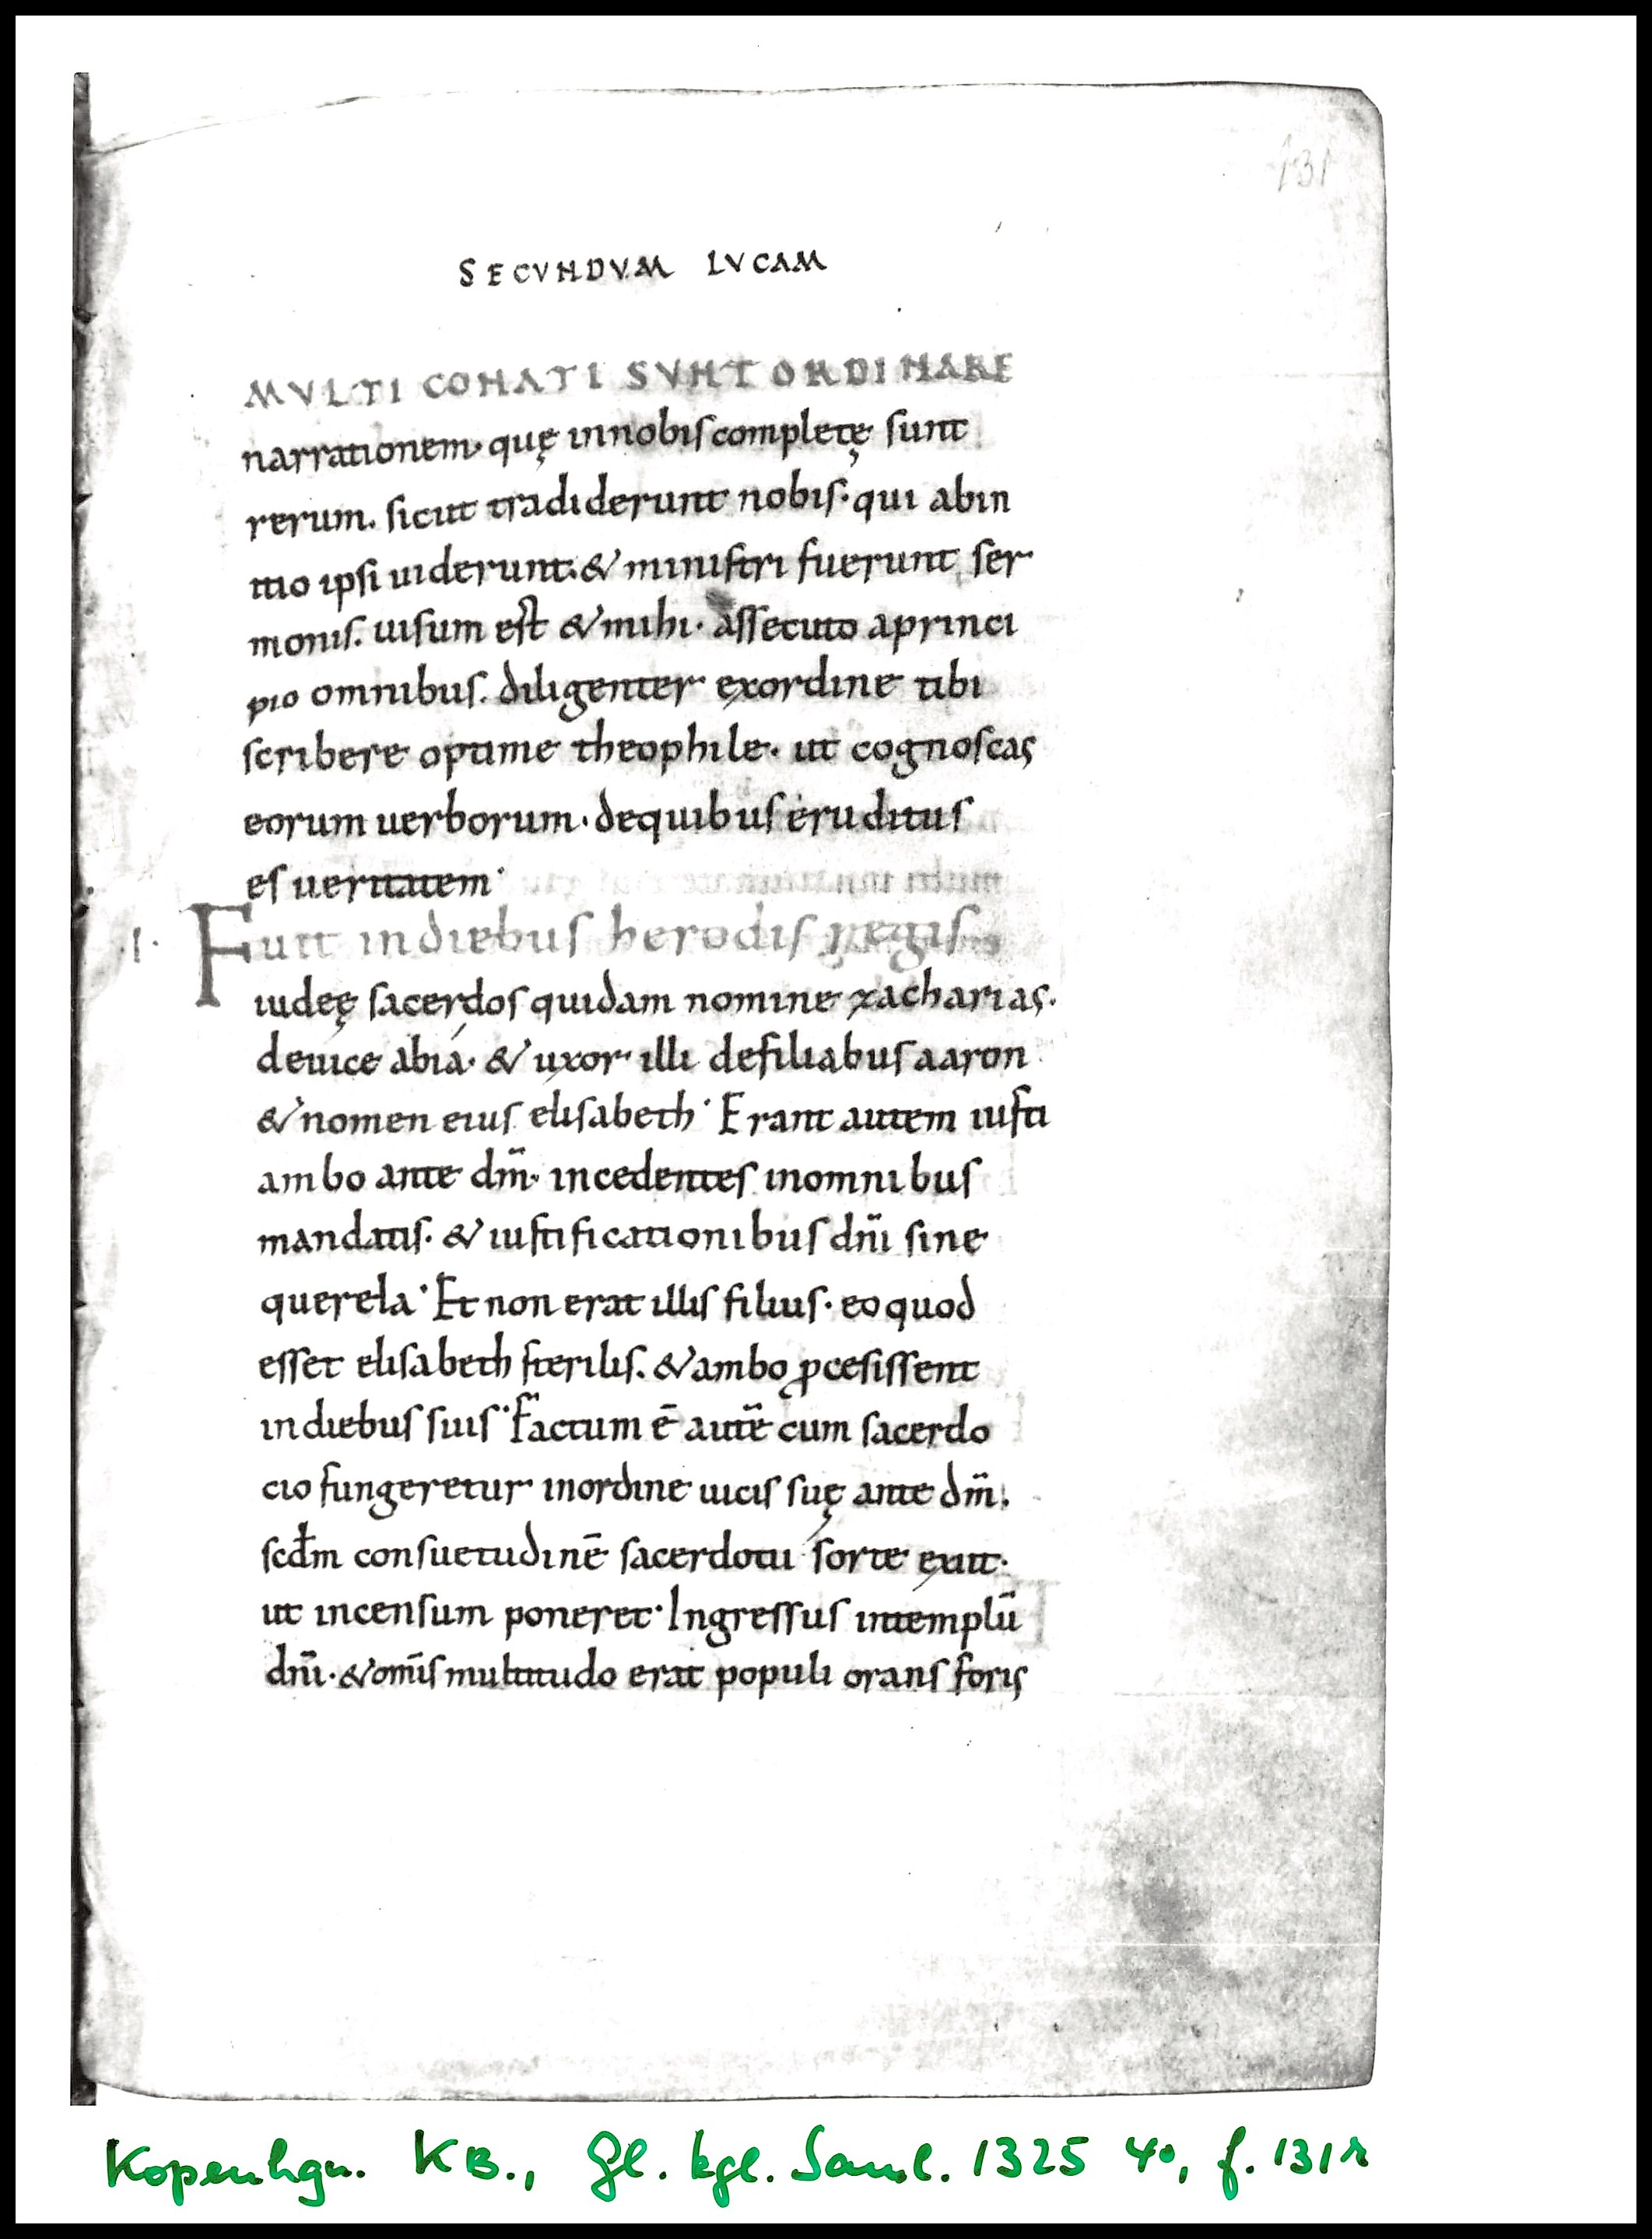 131
SECVNDVM LVCAM
MVLTI CONATI SVNT ORDINARE
narrationem· quę innobis complete̜ sunt
rerum. sicut tradiderunt nobis· qui abin
itio ipsi uiderunt· & ministri fuerunt ser
monis. uisum est & mihi· assecuto aprinci
pio omnibus. diligenter exordine tibi
scribere optime theophile· ut cognoscas
eorum uerborum· dequibus eruditus
es ueritatem·
·I· Fuit indiebus herodis regis
iudeę sacerdos quidam nomine zacharias.
deuice abia· & uxor illi defiliabus aaron
& nomen eius elisabeth· Erant autem iusti
ambo ante dm̅· incedentes inomnibus
mandatis· & iustificationibus dn̅i sine
querela· Et non erat illis filius· eo quod
esset elisabeth sterilis. & ambo ꝓcesissent
indiebus suis· Factum ē autē cum sacerdo
cio fungeretur inordine uicis suę ante dm̅.
scdm̅ consuetudinē sacerdotii sorte exiit·
ut incensum poneret· Ingressus intemplū
dn̅i· & om̅is multitudo erat populi orans foris
Kopenhgn. KB., Gl. kgl. Saml. 1325 4°, f. 131r